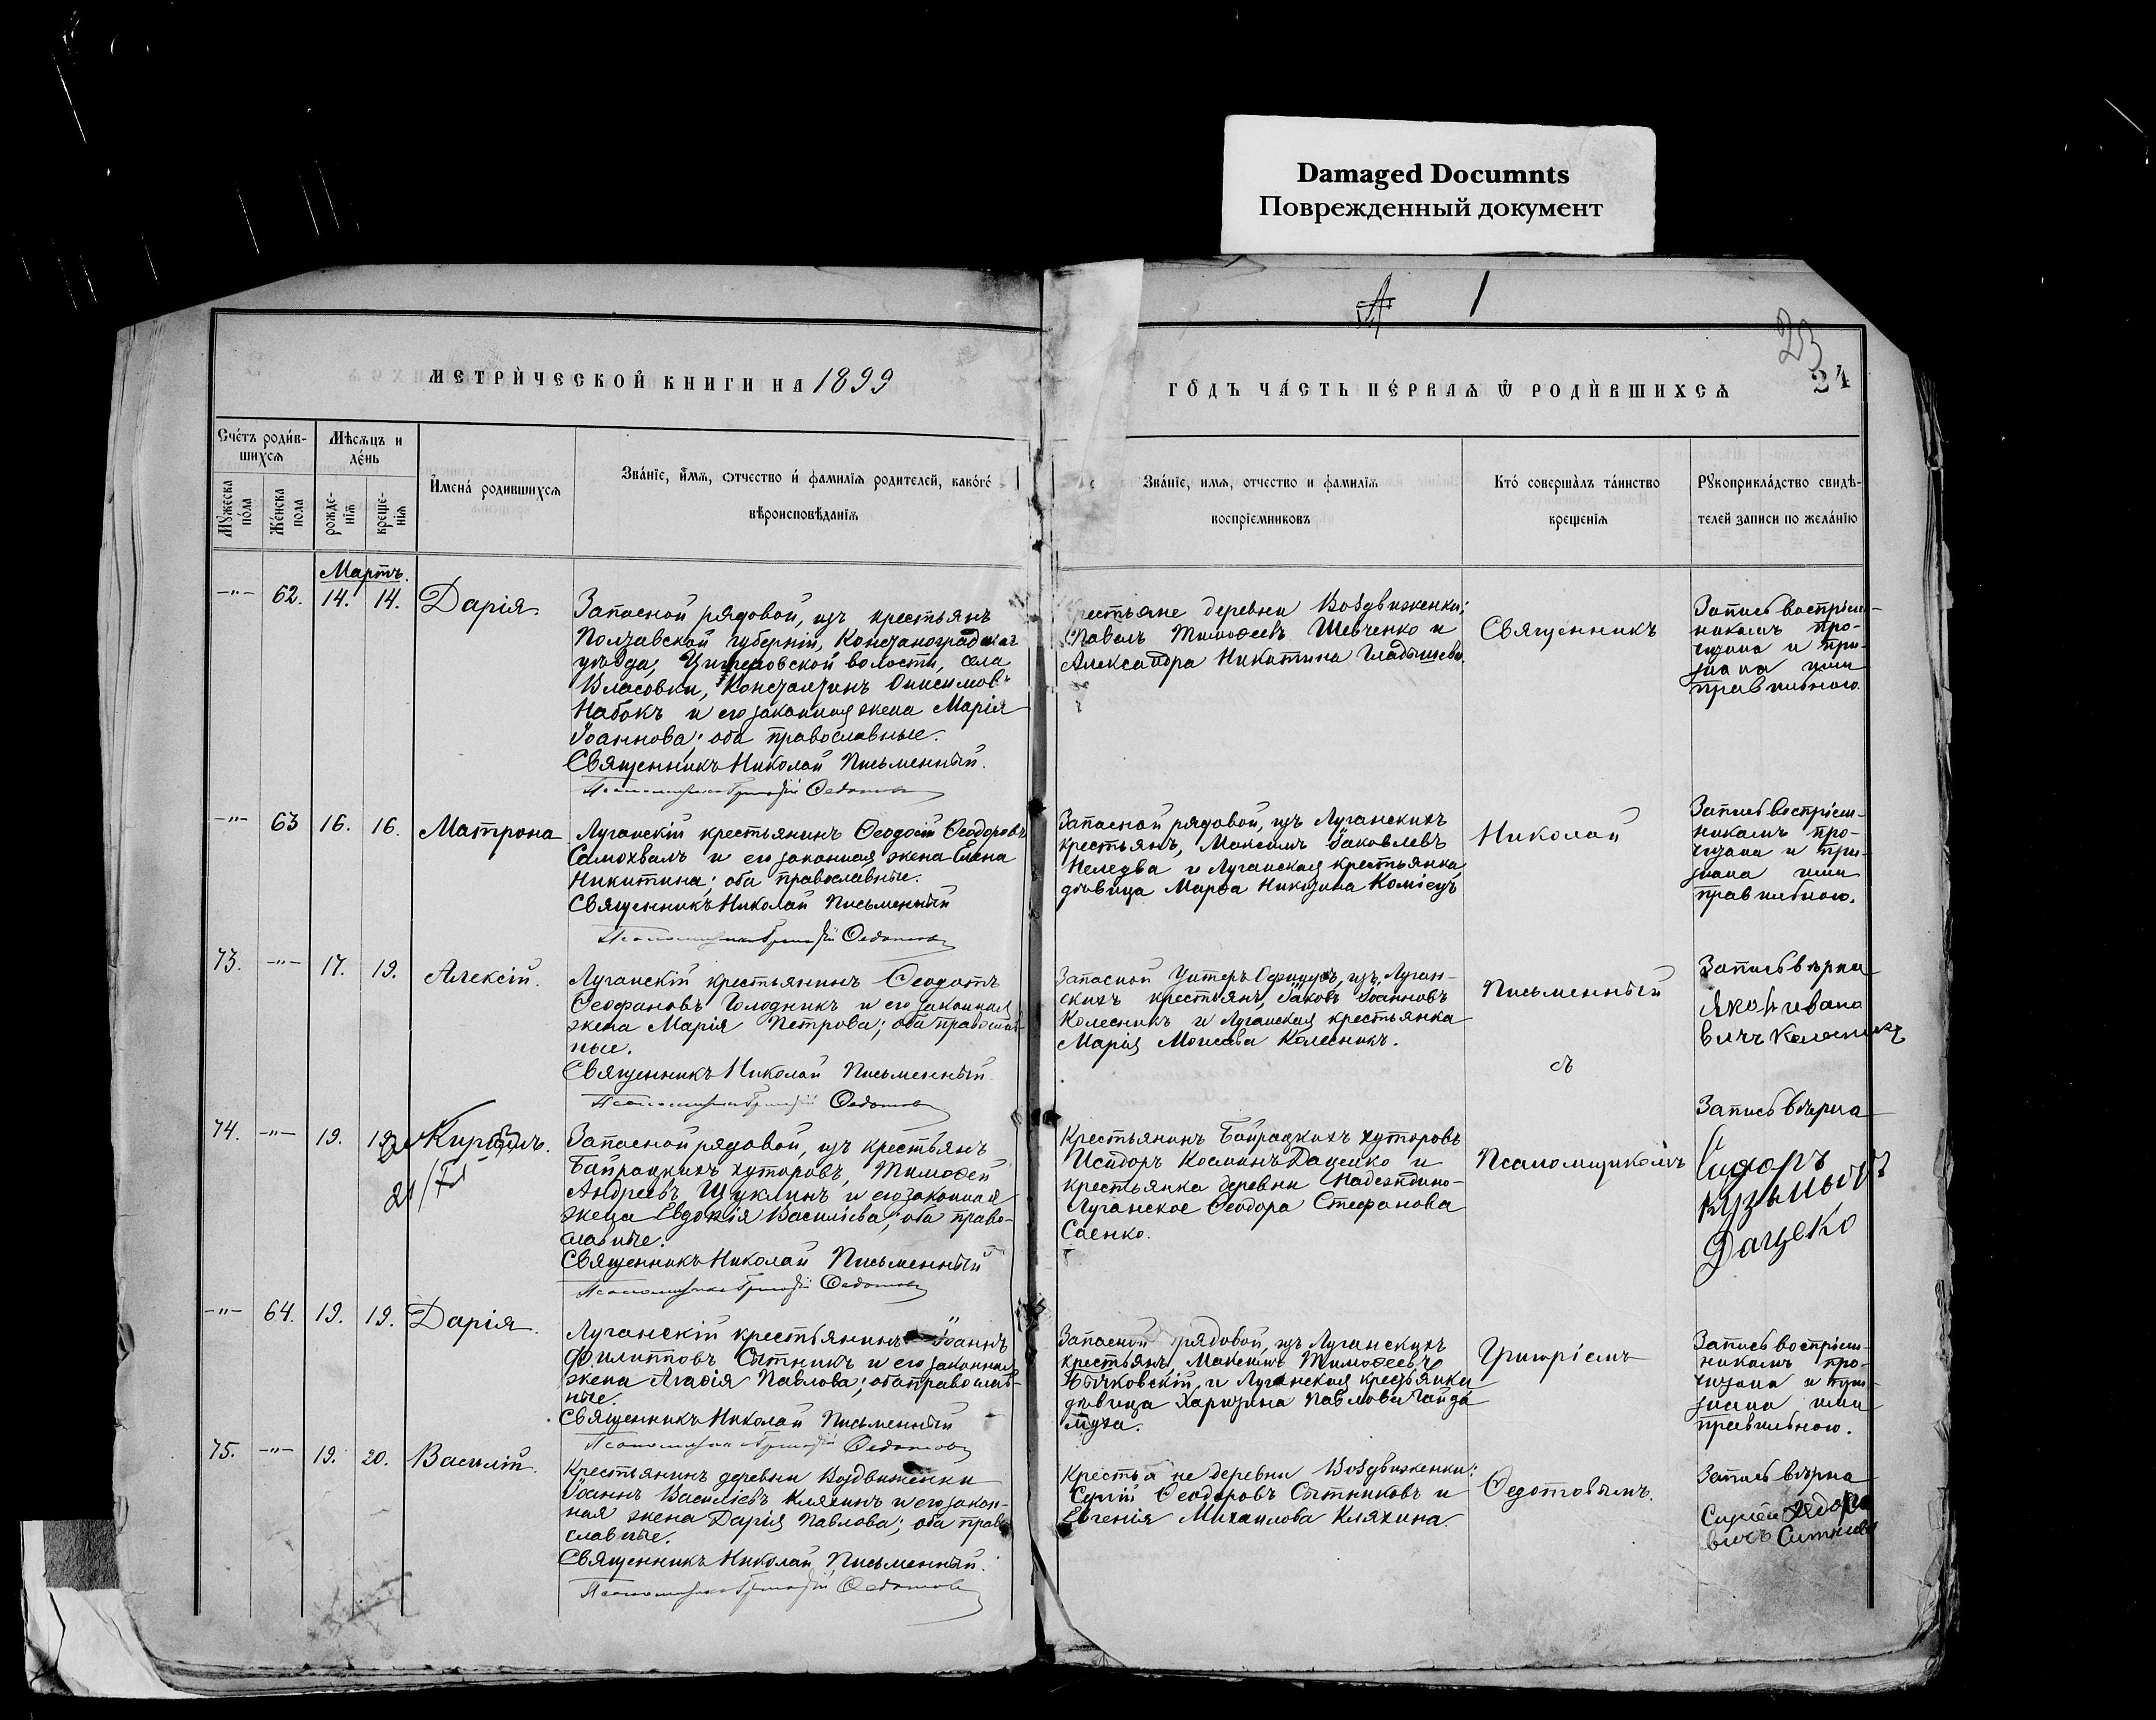 Damaged Documnts
Поврежденный документ
1
23
24
МЕТРИ́ЧЕСКОЙ КНИГИ НА 1899
ГО́ДЪ ЧА́СТЬ ПЕ́РВАѦ Ѡ҆ РОДИ́ВШИХСѦ
Сче́тъ роди́в-
шихсѧ
Мѣсѧцъ и
де́нь
Мꙋжеска
по́ла
Же́нска
пола
рожде-
нїѧ
креще-
нїѧ
И҆мена́ родившихсѧ
Зва́нїе, и҆́мѧ, ѻтчество и҆ фамилїѧ родителей, како́гѡ
вѣроисповѣ́данїѧ
Зва́нїе, имѧ, отчество и фамилїѧ
воспрїемниковъ
Кто́ соверша̀лъ та́инство
крещенїѧ
Рꙋкоприкла́дство свидѣ-
телей записи по жела́нїю
Мартъ.
—"— 62. 14. 14. Дарія.
Запасной рядовой, изъ крестьянъ
Полтавской губерніи, Константиноградскаго
уѣзда, волости, села
Власовки, Константинъ Онисимовъ
Набокъ и его законная жена Марія
Іоаннова; оба православные.
Священникъ Николай Письменный.
Псаломщикъ Григорій Федотовъ
крестьяне деревни Воздвиженки:
Павелъ Тимофеевъ Шевченко и
Александра Никитина Гладышева.
Священникъ
Запись воспріем-
никамъ про-
читана и при-
знана ими
правильною.
—"— 63 16. 16. Матрона
Луганскій крестьянинъ Ѳеодосій Ѳеодоровъ
Самохвалъ и его законная жена Елена
Никитина; оба православные.
Священникъ Николай Письменный
Псаломщикъ Григорій Федотовъ
Запасной рядовой, изъ Луганскихъ
крестьянъ, Максимъ Іаковлевъ
Неледва и Луганская крестьянка
дѣвица Марѳа Никитина Комісцъ
Николай
Запись воспріем-
никамъ про-
читана и при-
знана ими
правильною.
73. —"— 17. 19. Алексій.
Луганскій крестьянинъ Ѳеодотъ
Ѳеофановъ Голодникъ и его законная
жена Марія Петрова; оба православ-
ные.
Священникъ Николай Письменный.
Псаломщикъ Григорій Федотовъ
Запасной Унтеръ Офицеръ, изъ Луган-
скихъ крестьянъ, Іаковъ Іоанновъ
Колесникъ и Луганская крестьянка
Марія Моисеева Колесникъ.
Письменный
съ
Запись вѣрна
Яковъ Ивано
вичъ Колесникъ
74. —"— 19. 19. Кириллъ.
21/
Запасной рядовой, изъ крестьянъ
Байрацкихъ хуторовъ, Тимофей
Андреевъ Щуклинъ и его законная
жена Евдокія Василіева; оба право-
славные.
Священникъ Николай Письменный
Псаломщикъ Григорій Федотовъ
Крестьянинъ Байрацкихъ хуторовъ
Исидоръ Косминъ Даценко и
крестьянка деревни Надеждино-
Луганское Ѳеодора Стефанова
Саенко.
Псаломщикомъ
Запись вѣрна
Сидоръ
Кузьмычъ
Дацеко
—"— 64. 19. 19. Дарія.
Луганскій крестьянинъ Іоаннъ
Филипповъ Сытникъ и его законная
жена Агафія Павлова; оба православ-
ные.
Священникъ Николай Письменный
Псаломщикъ Григорій Федотовъ
Запасной рядовой, изъ Луганскихъ
крестьянъ, Максимъ Тимофеевъ
Бычковскій, и Луганская крестьянка
дѣвица Харитина Павлова Гайда
муха.
Григоріемъ
Запись воспріем-
никамъ про-
читана и при-
знана ими
правильною.
75. —"— 19. 20. Василій.
Крестьянинъ деревни Воздвиженки
Іоаннъ Василіевъ Кляхинъ и его закон-
ная жена Дарія Павлова; оба право
славные.
Священникъ Николай Письменный.
Псаломщикъ Григорій Федотовъ
Крестьяне деревни Воздвиженки:
Сергій Ѳеодоровъ Сытниковъ и
Евгенія Михаилова Кляхина.
Ѳедотовымъ.
Запись вѣрна
Сергей Федоро
вичъ Ситников